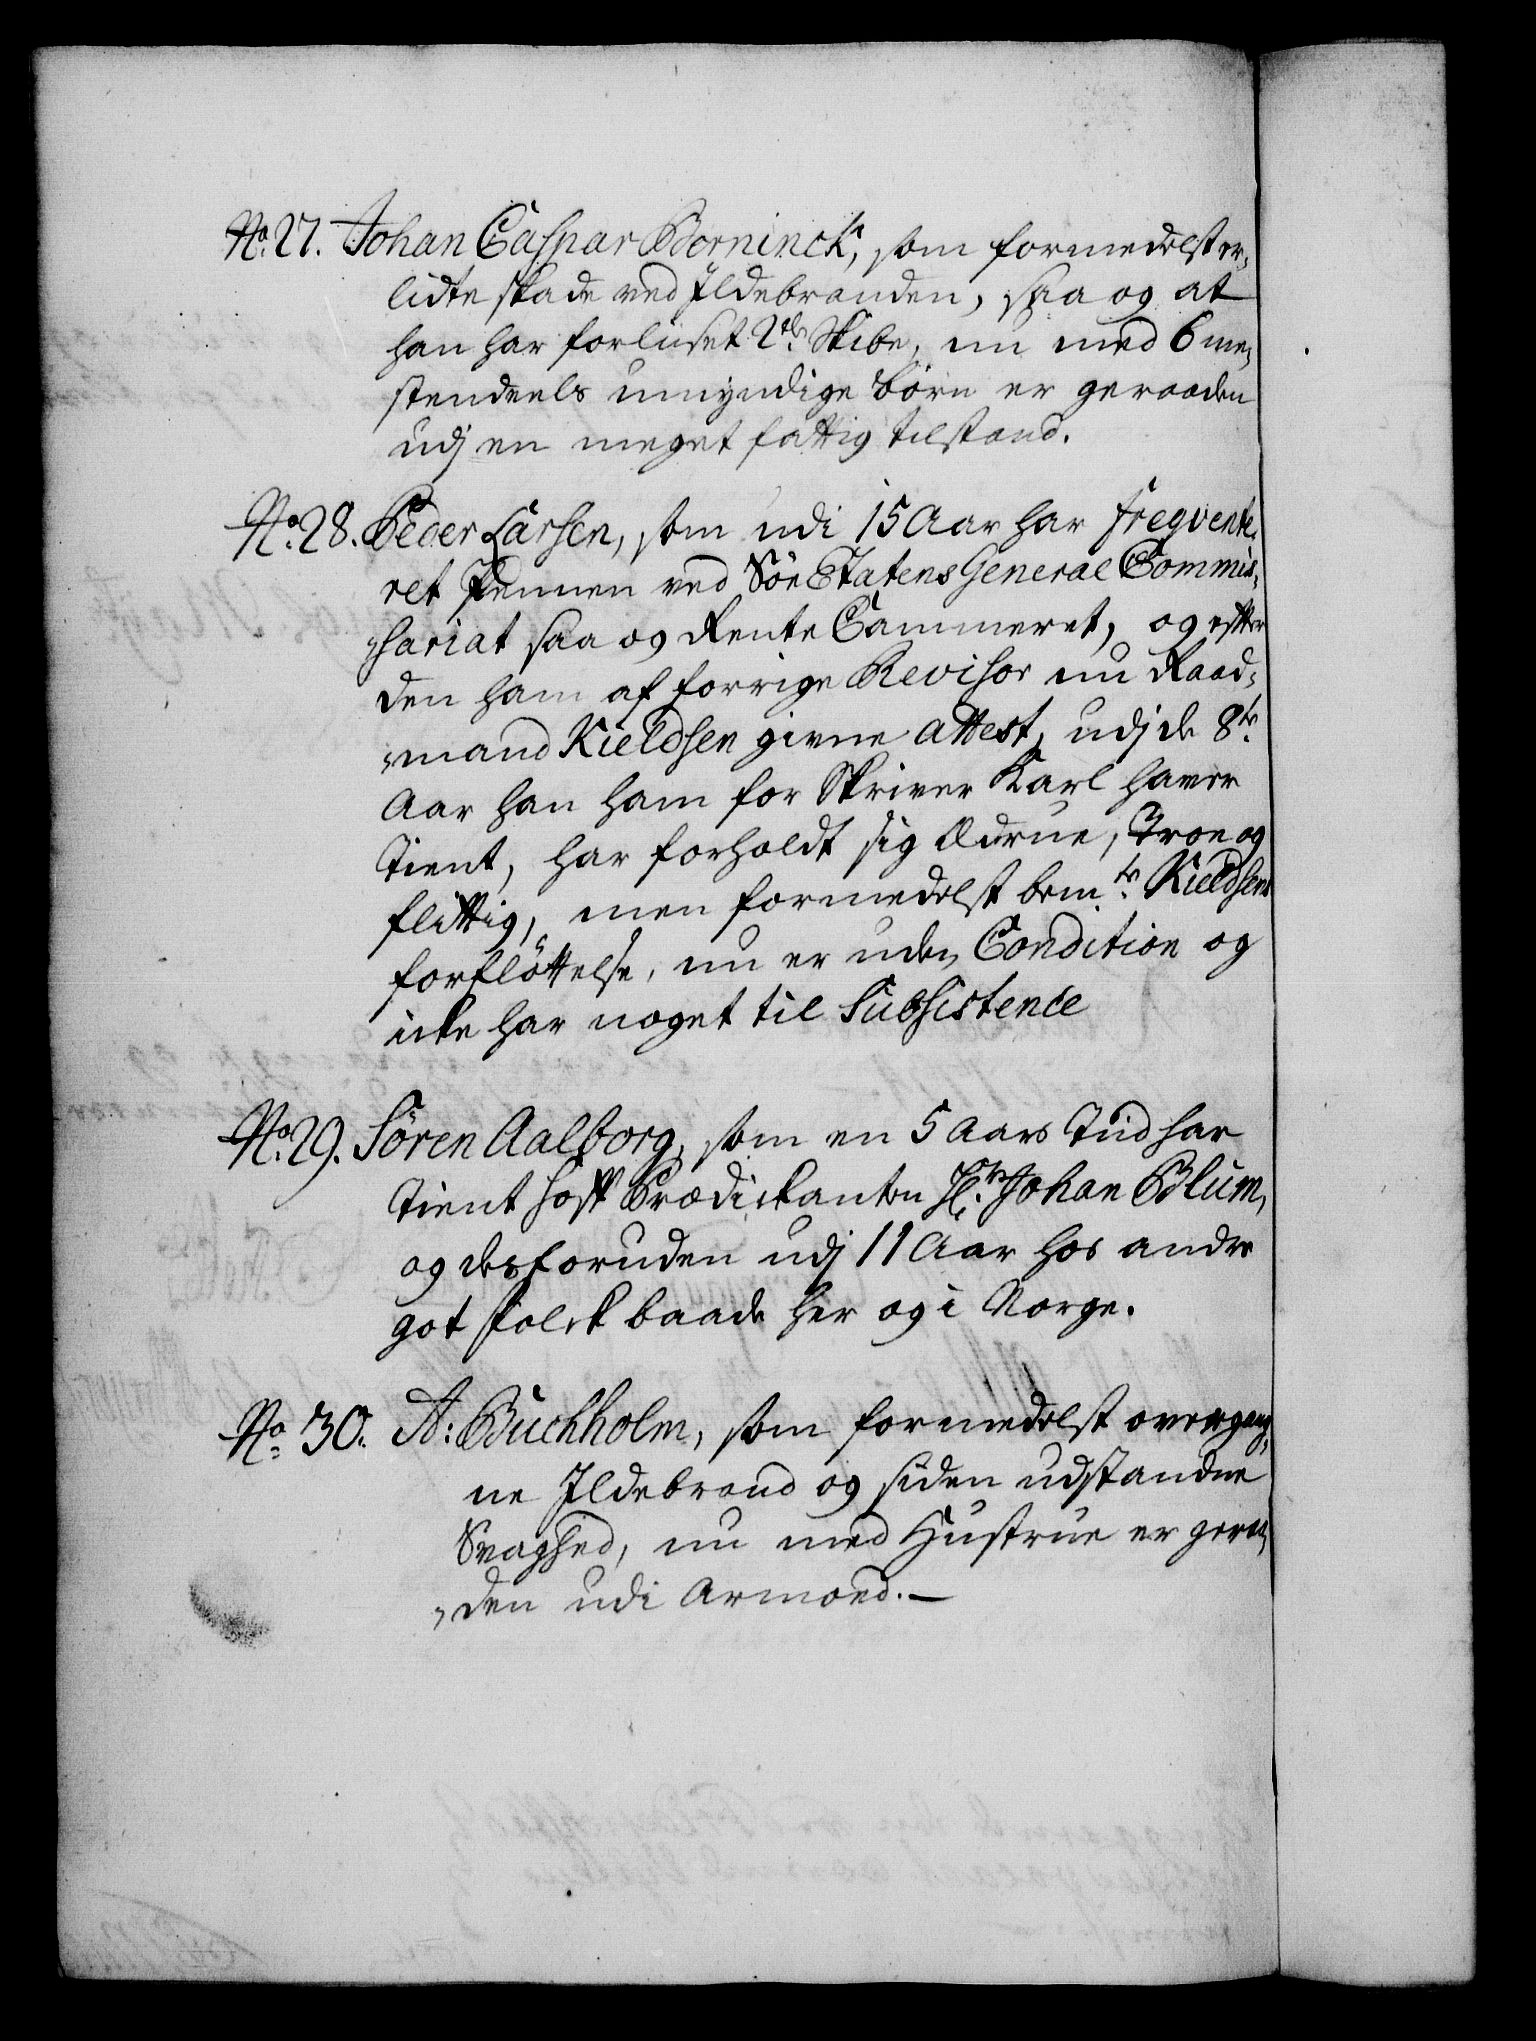 No. 27. Johan Caspar Borninck, som formedelst er-
lidte skade ved Ildebranden, saa og at
han har forliiset 2de Skibe, nu med 6 me-
stendeels umyndige börn er geraaden
udj en meget fattig tilstand.
No. 28. Peder Larsen, som udi 15 Aar har freqvente-
ret Pennen ved Söe Etatens General Commis-
sariat saa og Rente Cammeret, og efter
den ham af forrige Revisor nu Raad-
mand Kieldsen givne attest, udj de 8te
Aar han ham for Skriver Karl haver
Tient, har forholdt sig Ædrue, Troe og
flittig, men formedelst bemte Kieldsens
forflöttelse, nu er uden Condition og
icke har noget til Subsistence
No. 29. Sören Aalborg, som en 5 Aars Tiid har
Tient hoss Prædickanten Hr. Johan Blum,
og desforuden udj 11 Aar hos andre
got folck baade her og i Norge.
No. 30. A: Buchholm, som formedelst overgang-
ne Ildebrand og siden udstandne
Svaghed, nu med Hustrue er geraa-
den udi Armoed.—